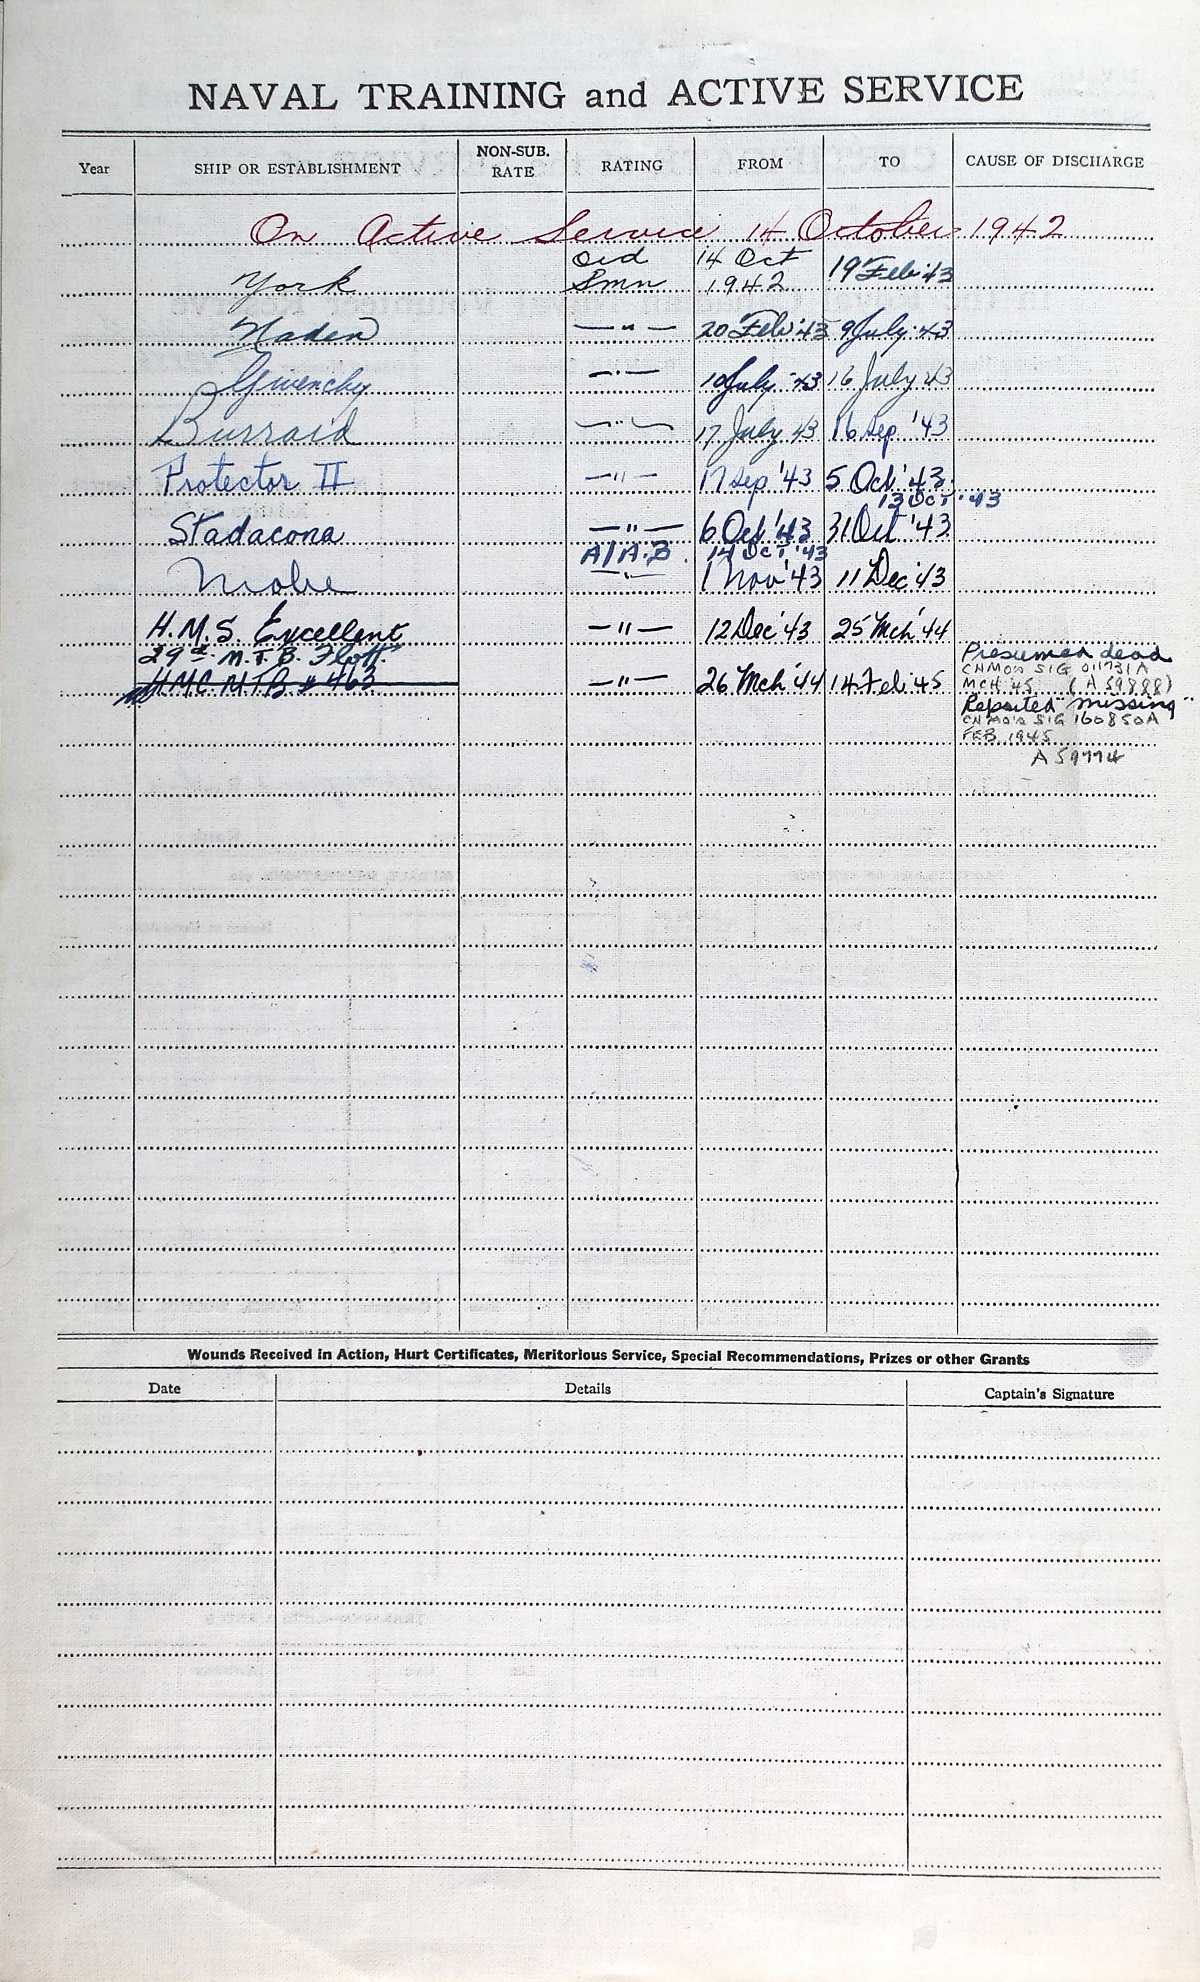 NAVAL TRAINING and ACTIVE SERVICE
Year SHIP OR ESTABLISHMENT NON-SUB. RATE RATING FROM TO CAUSE OF DISCHARGE
On Active Service 14 October 1942
York Ord Smn 14 Oct 1942 19 Feb '43
Naden —"— 20 Feb '43 9 July '43
Givenchy —"— 10 July '43 16 July 43
Burrard —"— 17 July 43 16 Sep '43
Protector II —"— 17 Sep '43 5 Oct '43
13 Oct '43
Stadacona —"— 6 Oct '43 31 Oct '43
A/A.B. 14 Oct '43
Niobe —"— 1 Nov '43 11 Dec '43
H.M.S. Excellent —"— 12 Dec '43 25 Mch '44
29th M.T.B. Flott. Presumed dead
H.M.C. M.T.B. # 463 —"— 26 Mch '44 14 Feb '45 CNMO's SIG 011731A
MCH 45 (A 59888)
Reported "missing"
CNMO's SIG 160850A
FEB 1945
A 59774
Wounds Received in Action, Hurt Certificates, Meritorious Service, Special Recommendations, Prizes or other Grants
Date Details Captain's Signature